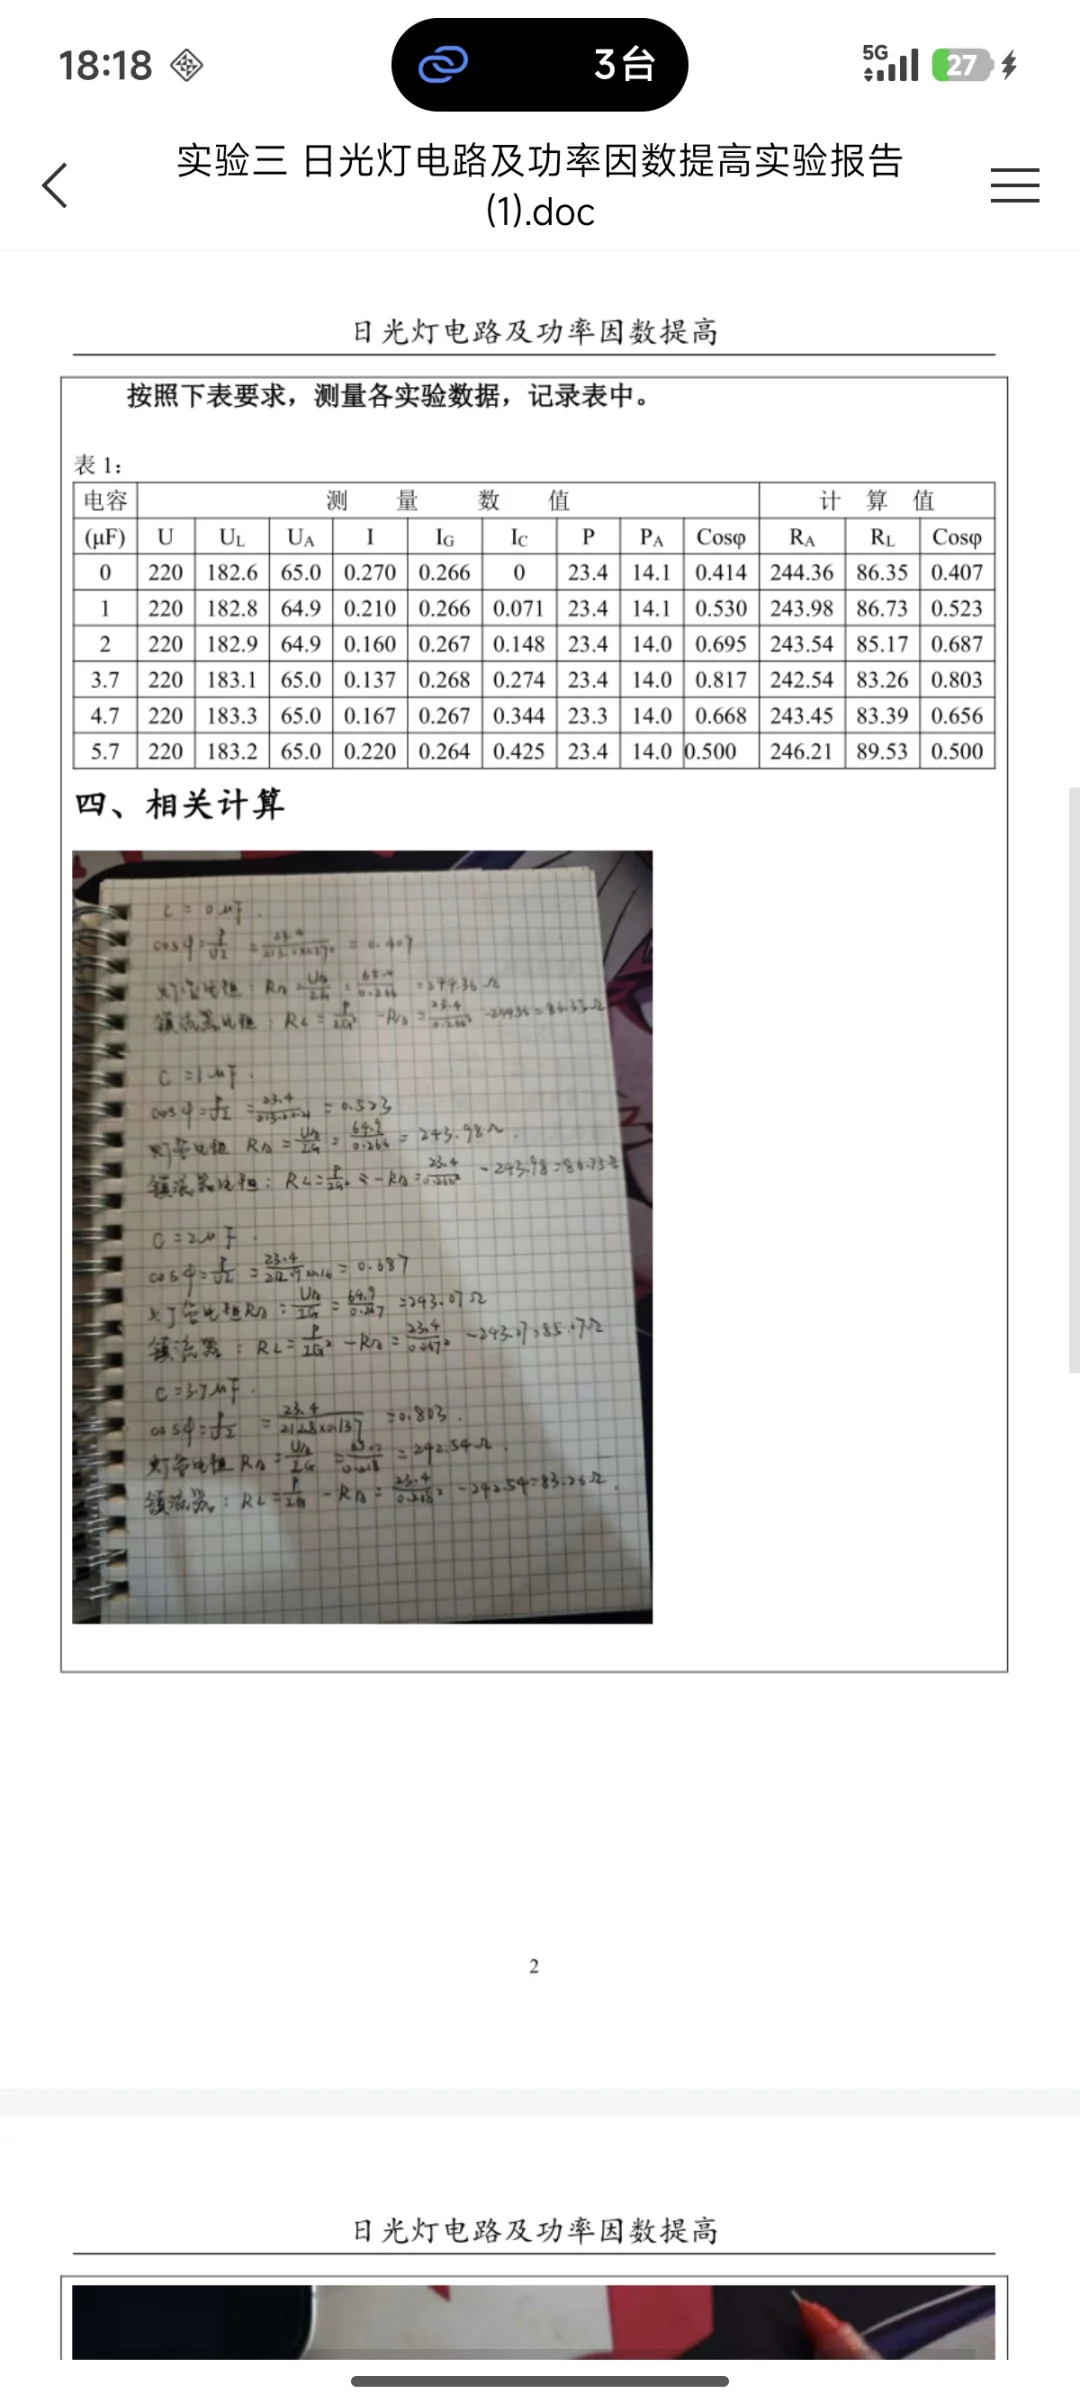 18:18
3台
5G
27
实验三 日光灯电路及功率因数提高实验报告
(1).doc
日光灯电路及功率因数提高
按照下表要求，测量各实验数据，记录表中。
表 1：
电容 测 量 数 值 计 算 值
(μF) U UL UA I IG IC P PA Cosφ RA RL Cosφ
0 220 182.6 65.0 0.270 0.266 0 23.4 14.1 0.414 244.36 86.35 0.407
1 220 182.8 64.9 0.210 0.266 0.071 23.4 14.1 0.530 243.98 86.73 0.523
2 220 182.9 64.9 0.160 0.267 0.148 23.4 14.0 0.695 243.54 85.17 0.687
3.7 220 183.1 65.0 0.137 0.268 0.274 23.4 14.0 0.817 242.54 83.26 0.803
4.7 220 183.3 65.0 0.167 0.267 0.344 23.3 14.0 0.668 243.45 83.39 0.656
5.7 220 183.2 65.0 0.220 0.264 0.425 23.4 14.0 0.500 246.21 89.53 0.500
四、相关计算
C = 0 μF.
cosφ = P/UI = = 0.407
灯管电阻: RA = UA/IG = 65.0/0.266 = 244.36 Ω
镇流器电阻: RL = P/IG² - RA = 23.4/0.266² - 244.36 = 86.35 Ω
C = 1 μF.
cosφ = P/UI = = 0.523
灯管电阻 RA = UA/IG = 64.9/0.266 = 243.98 Ω.
镇流器电阻: RL = P/IG² - RA = 23.4/0.266² - 243.98 = 86.73
C = 2 μF.
cosφ = P/UI = = 0.687
灯管电阻 RA = UA/IG = 64.9/0.267 = 243.07 Ω
镇流器: RL = P/IG² - RA = 23.4/0.267² - 243.07 = 85.17 Ω
C = 3.7 μF.
cosφ = P/UI = 23.4/212.8×0.137 = 0.803.
灯管电阻 RA = UA/IG = 65.0/0.268 = 242.54 Ω.
镇流器: RL = P/IG - RA = 23.4/0.268² - 242.54 = 83.26 Ω.
2
日光灯电路及功率因数提高